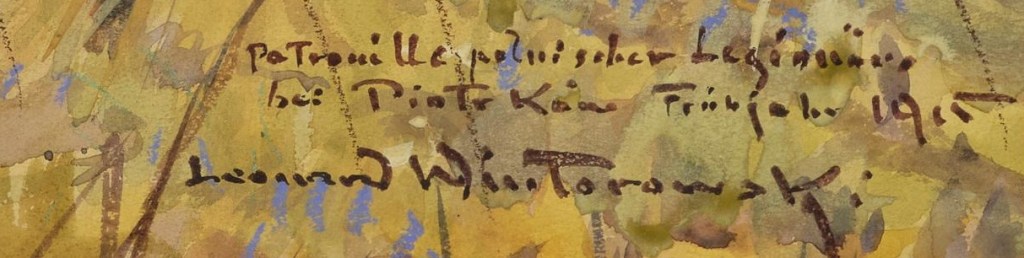 Patrouille polnischer Legionäre
bei Piotrków Frühjahr 1915
Leonard Winterowski